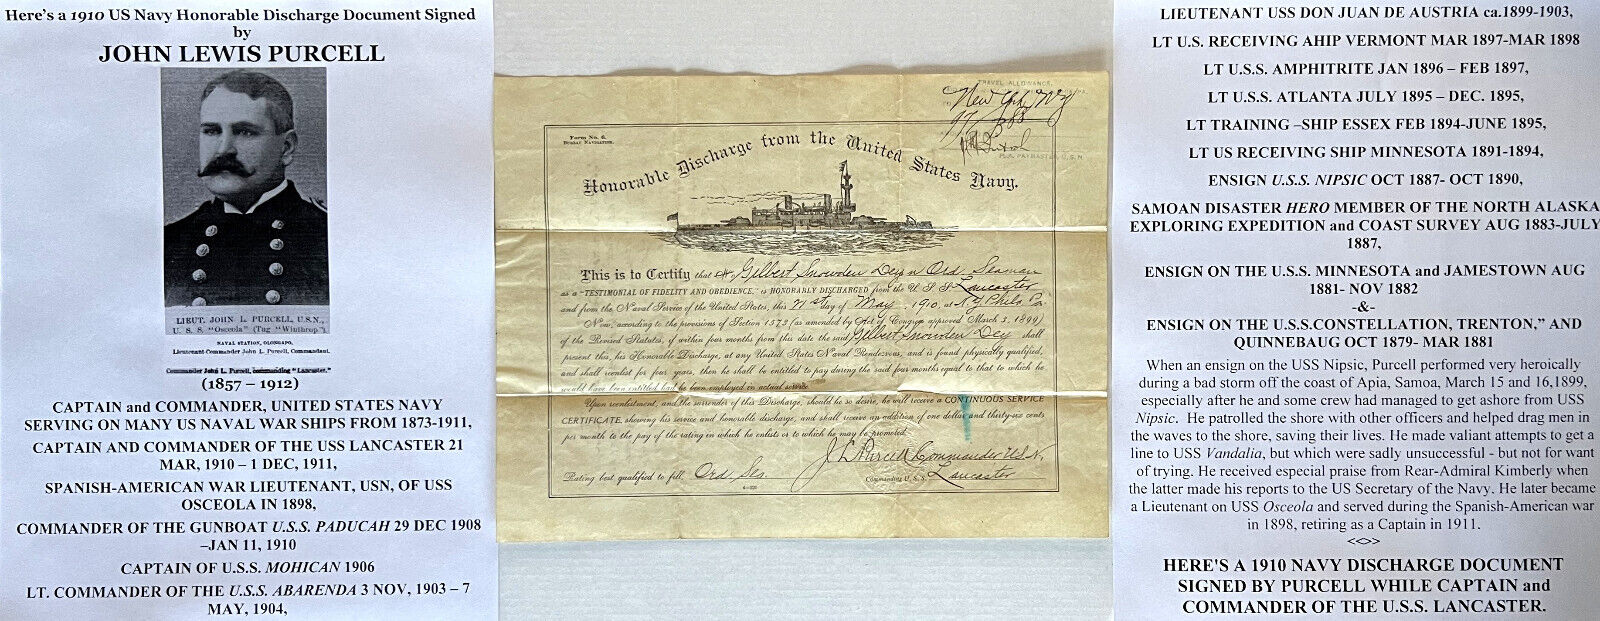 Here's a 1910 US Navy Honorable Discharge Document Signed
by
JOHN LEWIS PURCELL
LIEUT. JOHN L. PURCELL, U.S.N.,
U. S. S. "Osceola" (Tug "Winthrop").
NAVAL STATION, OLONGAPO,
Lieutenant-Commander John L. Purcell, Commandant.
Commander John L. Purcell, commanding "Lancaster."
(1857 – 1912)
CAPTAIN and COMMANDER, UNITED STATES NAVY
SERVING ON MANY US NAVAL WAR SHIPS FROM 1873-1911,
CAPTAIN AND COMMANDER OF THE USS LANCASTER 21
MAR, 1910 – 1 DEC, 1911,
SPANISH-AMERICAN WAR LIEUTENANT, USN, OF USS
OSCEOLA IN 1898,
COMMANDER OF THE GUNBOAT U.S.S. PADUCAH 29 DEC 1908
–JAN 11, 1910
CAPTAIN OF U.S.S. MOHICAN 1906
LT. COMMANDER OF THE U.S.S. ABARENDA 3 NOV, 1903 – 7
MAY, 1904,
TRAVEL ALLOWANCE
New York, NY
PAYMASTER, U.S.N
Form No. 6.
Bureau Navigation.
Honorable Discharge from the United States Navy.
This is to Certify that Gilbert Snowden Dey n Ord. Seaman
as a "TESTIMONIAL OF FIDELITY AND OBEDIENCE," is HONORABLY DISCHARGED from the U. S. S. Lancaster
and from the Naval Service of the United States, this 21st day of May, 1910, at N.Y. Phila Pa.
Now, according to the provisions of Section 1573 (as amended by Act of Congress approved March 3, 1899)
of the Revised Statutes, if within four months from this date the said Gilbert Snowden Dey shall
present this, his Honorable Discharge, at any United States Naval Rendezvous, and is found physically qualified,
and shall reenlist for four years, then he shall be entitled to pay during the said four months equal to that to which he
would have been entitled had he been employed in actual service.
Upon reenlistment, and the surrender of this Discharge, should he so desire, he will receive a CONTINUOUS SERVICE
CERTIFICATE, showing his service and honorable discharge, and shall receive an addition of one dollar and thirty-six cents
per month to the pay of the rating in which he enlists or to which he may be promoted.
J L Purcell Commander U.S.N.
Rating best qualified to fill, Ord. Sea. Commanding U. S. S. Lancaster
LIEUTENANT USS DON JUAN DE AUSTRIA ca.1899-1903,
LT U.S. RECEIVING AHIP VERMONT MAR 1897-MAR 1898
LT U.S.S. AMPHITRITE JAN 1896 – FEB 1897,
LT U.S.S. ATLANTA JULY 1895 – DEC. 1895,
LT TRAINING –SHIP ESSEX FEB 1894-JUNE 1895,
LT US RECEIVING SHIP MINNESOTA 1891-1894,
ENSIGN U.S.S. NIPSIC OCT 1887- OCT 1890,
SAMOAN DISASTER HERO MEMBER OF THE NORTH ALASKA
EXPLORING EXPEDITION and COAST SURVEY AUG 1883-JULY
1887,
ENSIGN ON THE U.S.S. MINNESOTA and JAMESTOWN AUG
1881- NOV 1882
-&-
ENSIGN ON THE U.S.S.CONSTELLATION, TRENTON," AND
QUINNEBAUG OCT 1879- MAR 1881
When an ensign on the USS Nipsic, Purcell performed very heroically
during a bad storm off the coast of Apia, Samoa, March 15 and 16,1899,
especially after he and some crew had managed to get ashore from USS
Nipsic. He patrolled the shore with other officers and helped drag men in
the waves to the shore, saving their lives. He made valiant attempts to get a
line to USS Vandalia, but which were sadly unsuccessful - but not for want
of trying. He received especial praise from Rear-Admiral Kimberly when
the latter made his reports to the US Secretary of the Navy. He later became
a Lieutenant on USS Osceola and served during the Spanish-American war
in 1898, retiring as a Captain in 1911.
<<>>
HERE'S A 1910 NAVY DISCHARGE DOCUMENT
SIGNED BY PURCELL WHILE CAPTAIN and
COMMANDER OF THE U.S.S. LANCASTER.